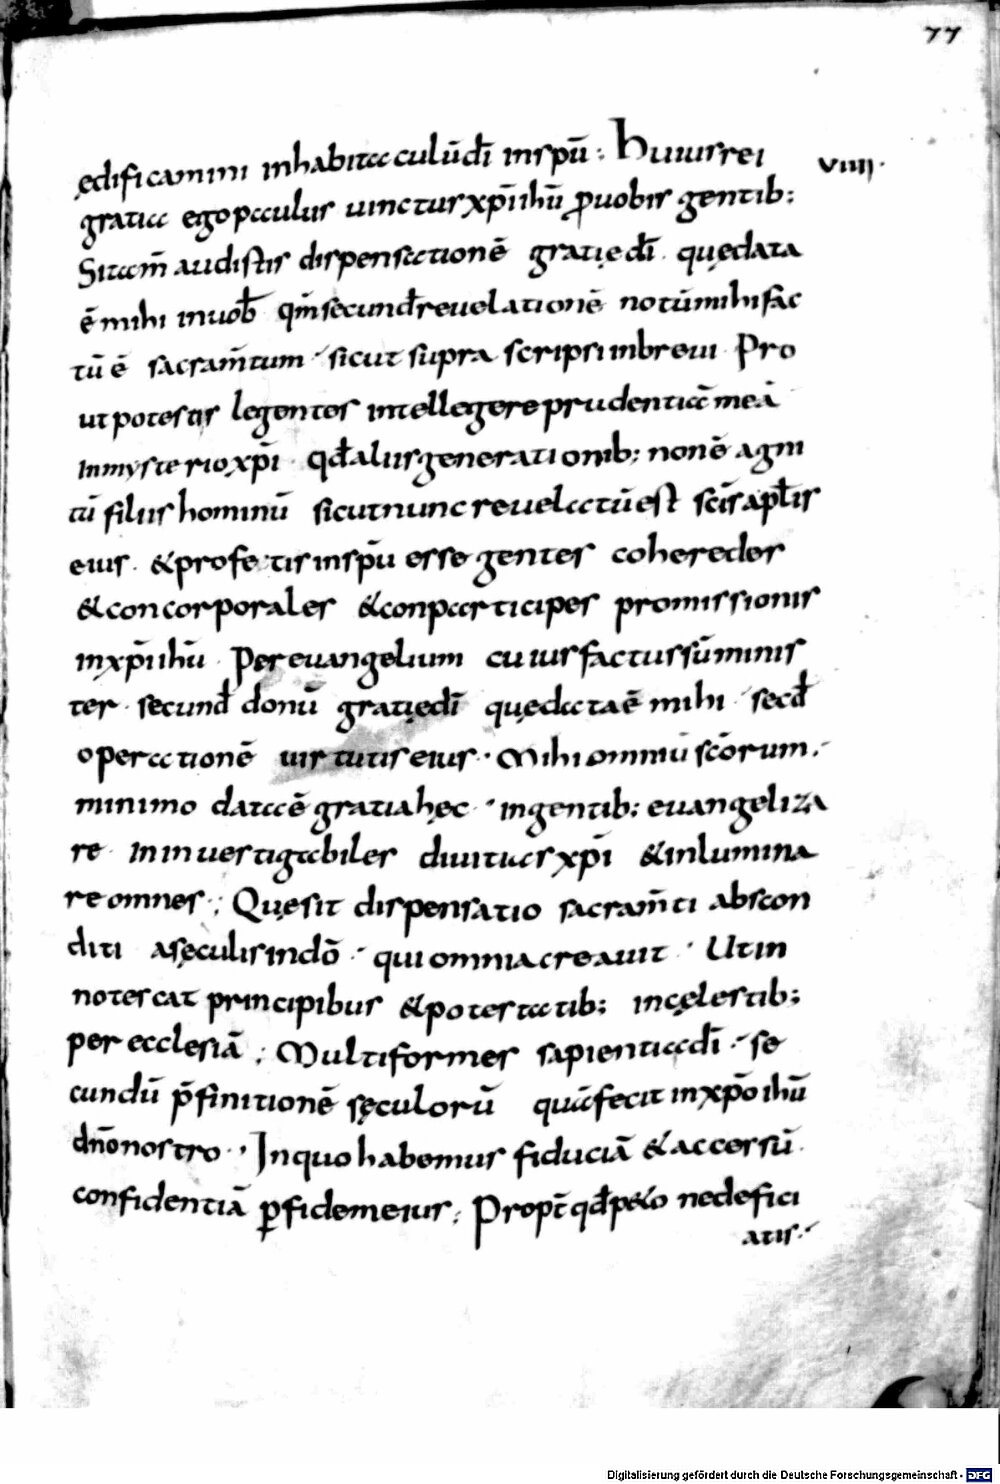 77
ędificamini inhabitaculū dī inspū: Huius rei
viiij.
gratia ego paulus uinctus xp̄i ihū ꝓ uobis gentib:
Si tam̄ audistis dispensationē gratię dī. quę data
ē mihi in uob̄ qm̄ secund̄ reuelationē notū mihi fac
tū ē sacram̄tum sicut supra scripsi inbreui Pro
ut potestis legentes intellegere prudentiā meā
In mysterio xp̄i. qd̄ aliis generationib; non ē agni
tū filiis hominū sicut nunc reuelatū est sc̄is apl̄is
eius. & profetis in sp̄u esse gentes coheredes
& concorporales & conparticipes promissionis
in xp̄i ihū Per euangelium cuius factus sū minis
ter. secund̄ donū gratię dī quę data ē mihi secd̄
operationē uirtutis eius. Mihi omniū scōrum.
minimo data ē gratia hęc. in gentib: euangeliza
re Inuestigabiles diuitias xp̄i & inlumina
re omnes; Quę sit dispensatio sacram̄ti abscon
diti a sęculis in dō. qui omnia creauit. Ut in
notescat principibus & potestatib; in cęlestib;
per ecclesiā; Multiformes sapientia dī. se
cundū p̄finitionē sęculorū quā fecit in xp̄o ihū
dn̄o nostro. In quo habemus fiduciā & accessū
confidentiā ꝑ fidem eius; Propt̄ qd̄ p&o ne defici
atis.
Digitalisierung gefördert durch die Deutsche Forschungsgemeinschaft - DFG